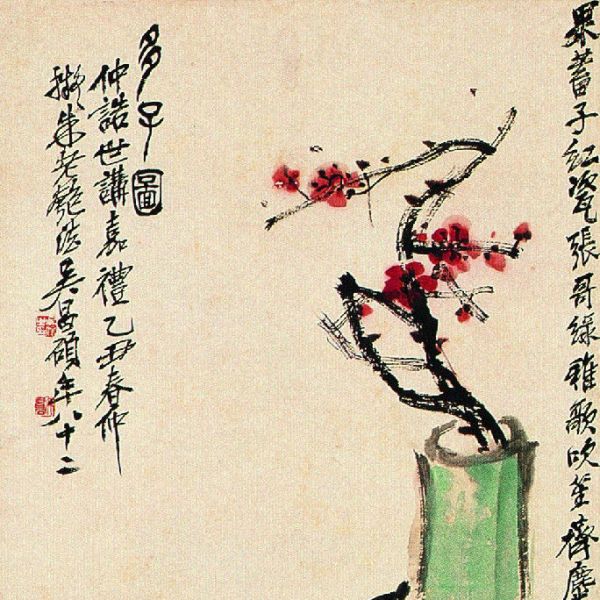 蓄子紅瓷張哥綠雅歌吹笙
多子圖
仲誥世講嘉禮乙丑春仲
擬朱老匏法吳昌碩年八十二